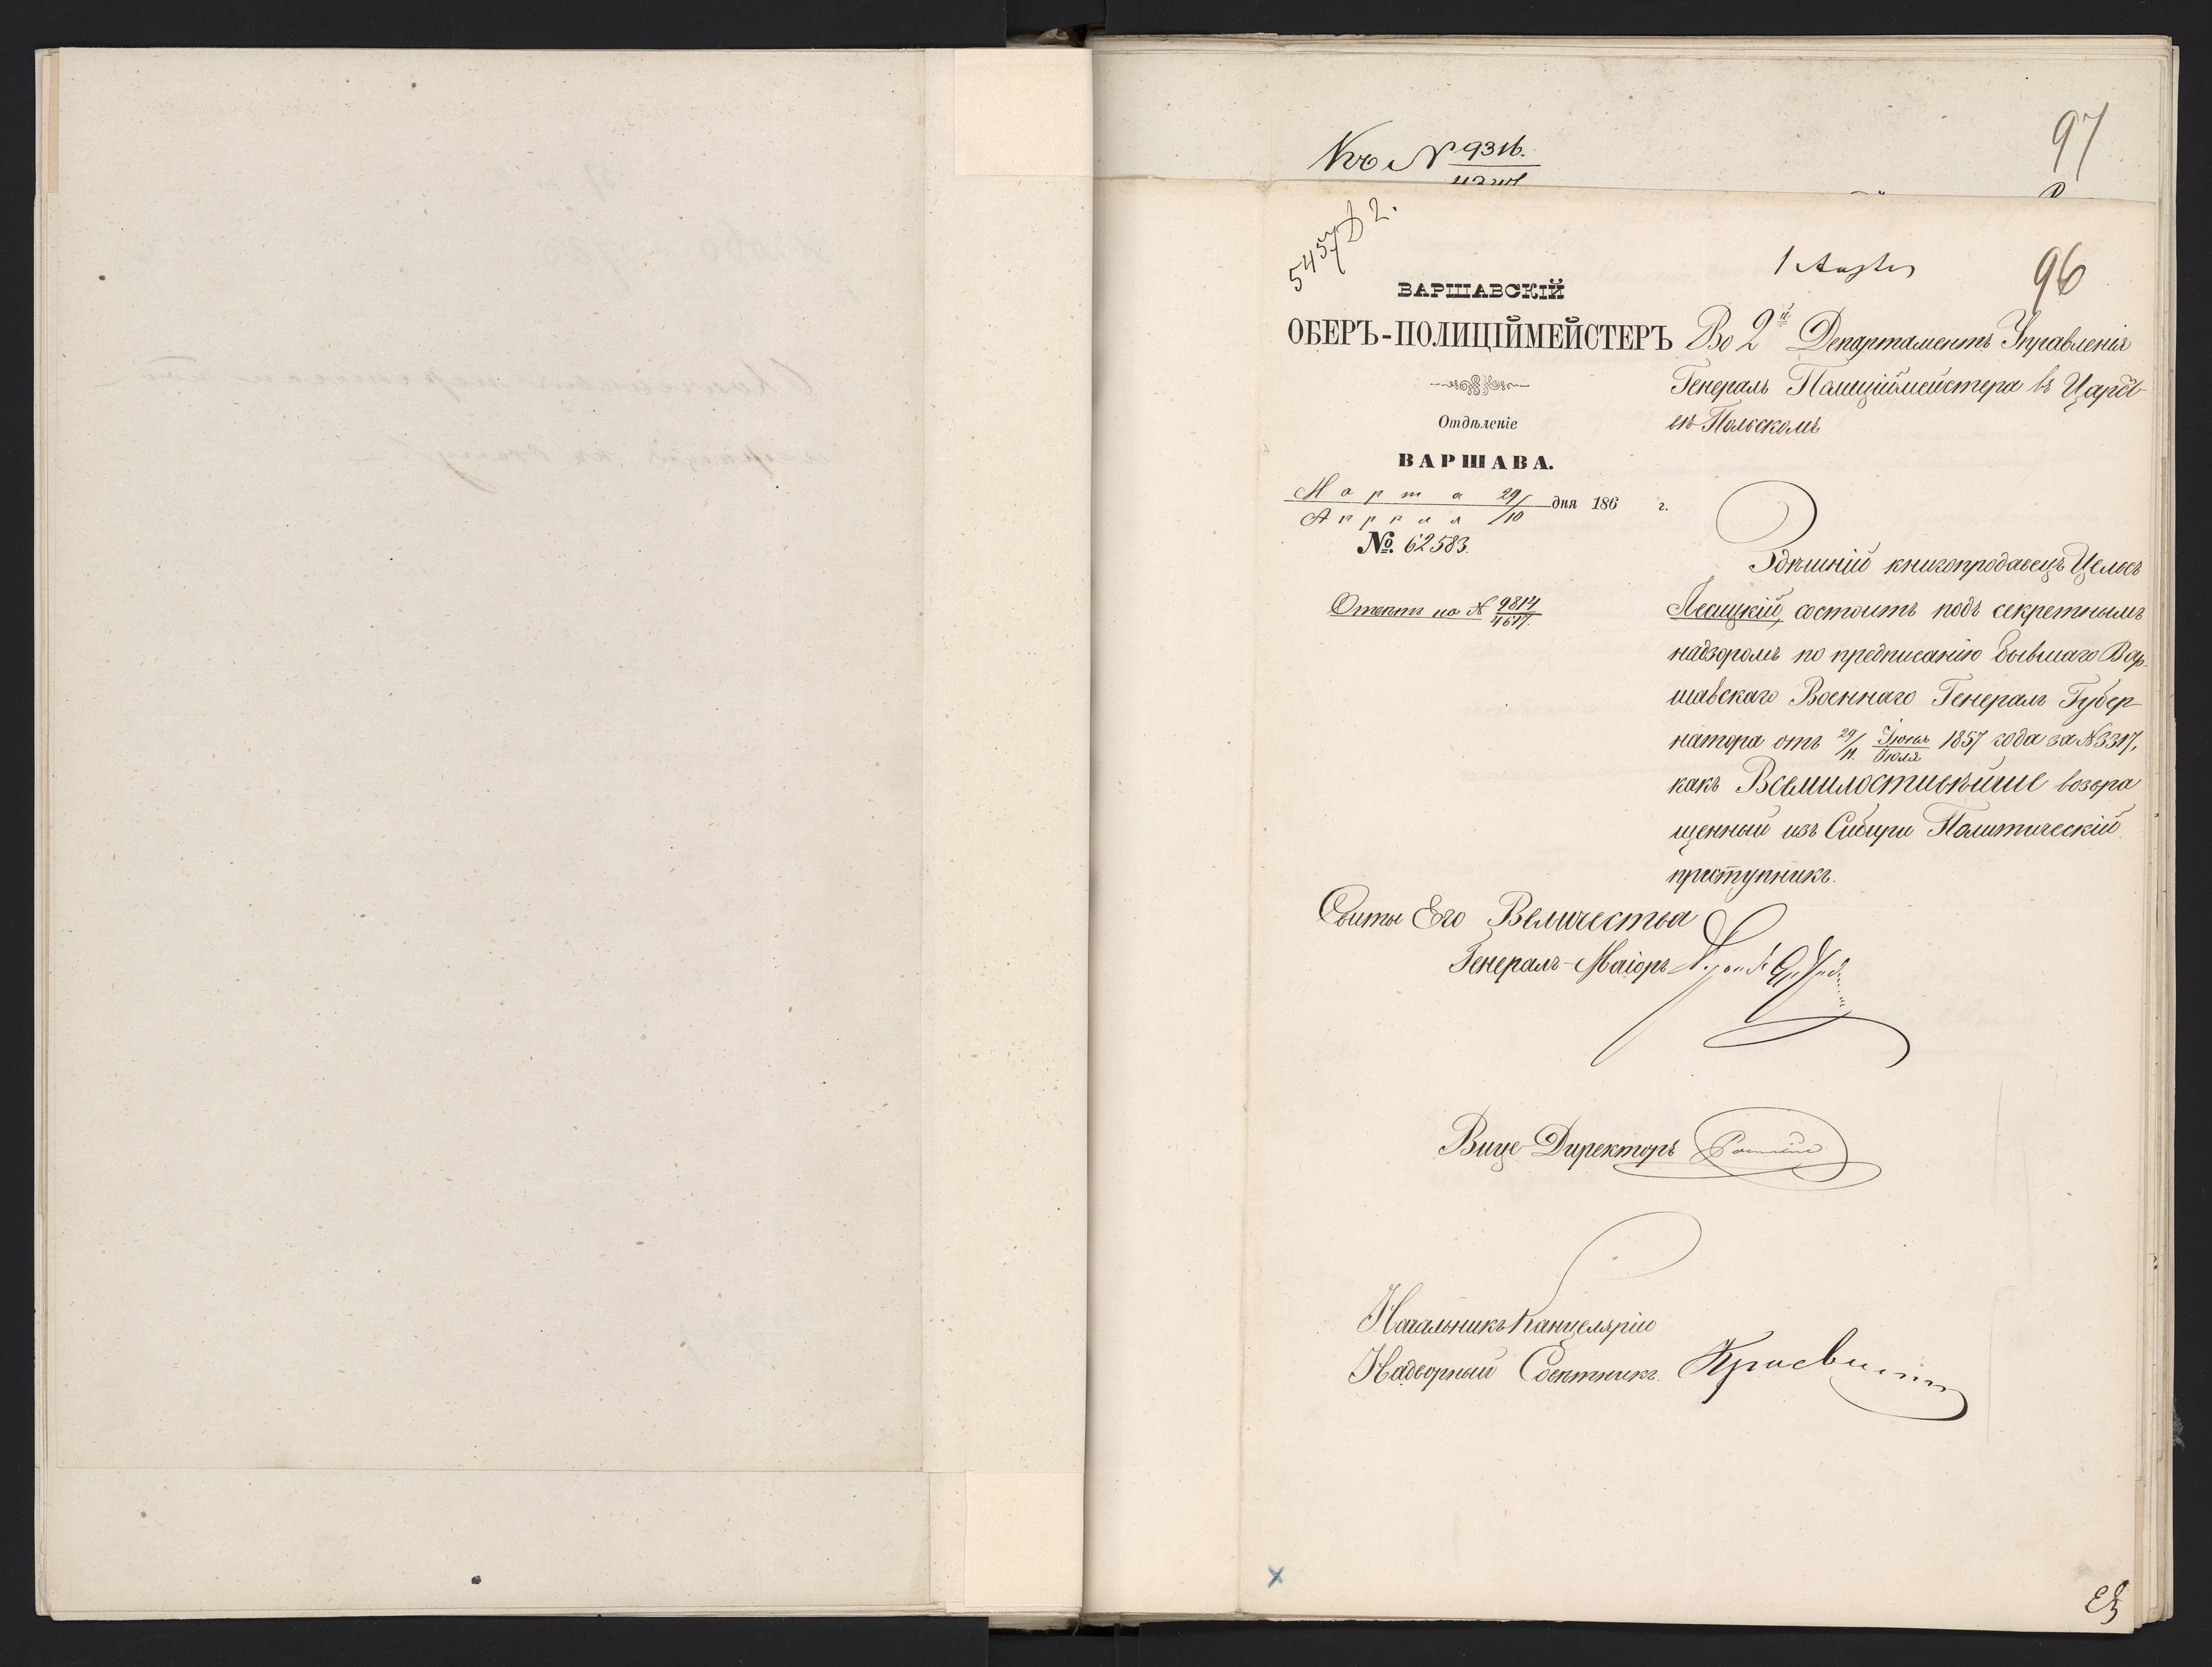 Къ № 9316.
97
5457 Д 2.
96
ВАРШАВСКІЙ
ОБЕРЪ-ПОЛИЦІЙМЕЙСТЕРЪ
Отдѣленіе
ВАРШАВА.
Марта 29/
Апрѣля /10 дня 186 г.
№. 62583.
Отвѣтъ на № 9814/4617.
Во 2й Департаментъ Управленія
Генералъ Полиціймейстера въ Царст-
вѣ Польскомъ
Здѣшній книгопродавецъ Цельсъ
Лесицкій, состоитъ подъ секретнымъ
надзоромъ по предписанію бывшаго Вар-
шавскаго Военнаго Генералъ Губер-
натора отъ 29/11 Іюня/Іюля 1857 года за № 3317,
какъ Всемилостивѣйше возвра
щенный изъ Сибири Политическій
преступникъ.
Свиты Его Величества
Генералъ-Маіоръ
Вице-Директоръ
Начальникъ Канцеляріи
Надворный Совѣтникъ